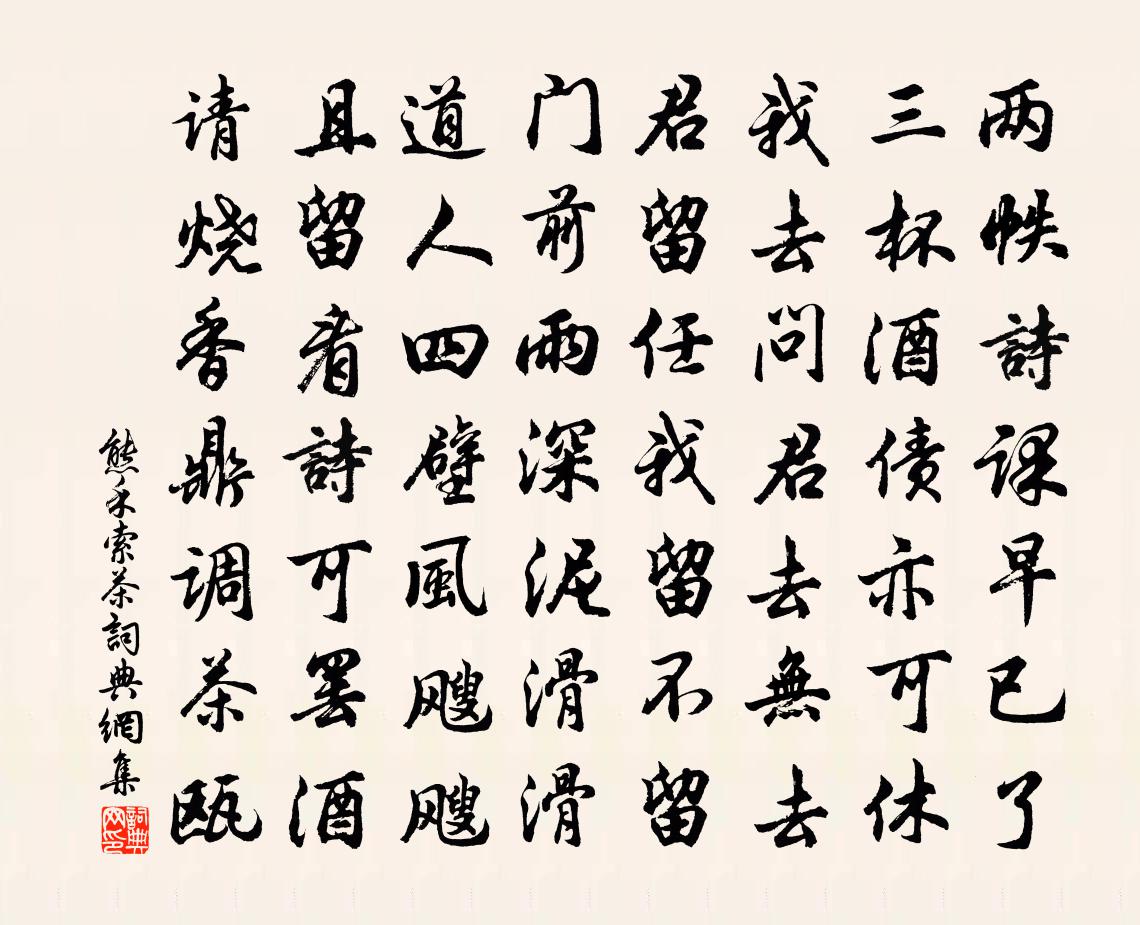 两帙詩课早已了
三杯酒债亦可休
我去问君去無去
君留任我留不留
门前雨深泥滑滑
道人四壁風飕飕
且留看詩可罢酒
请烧香鼎调茶瓯
熊禾索茶詞典網集
詞典网印